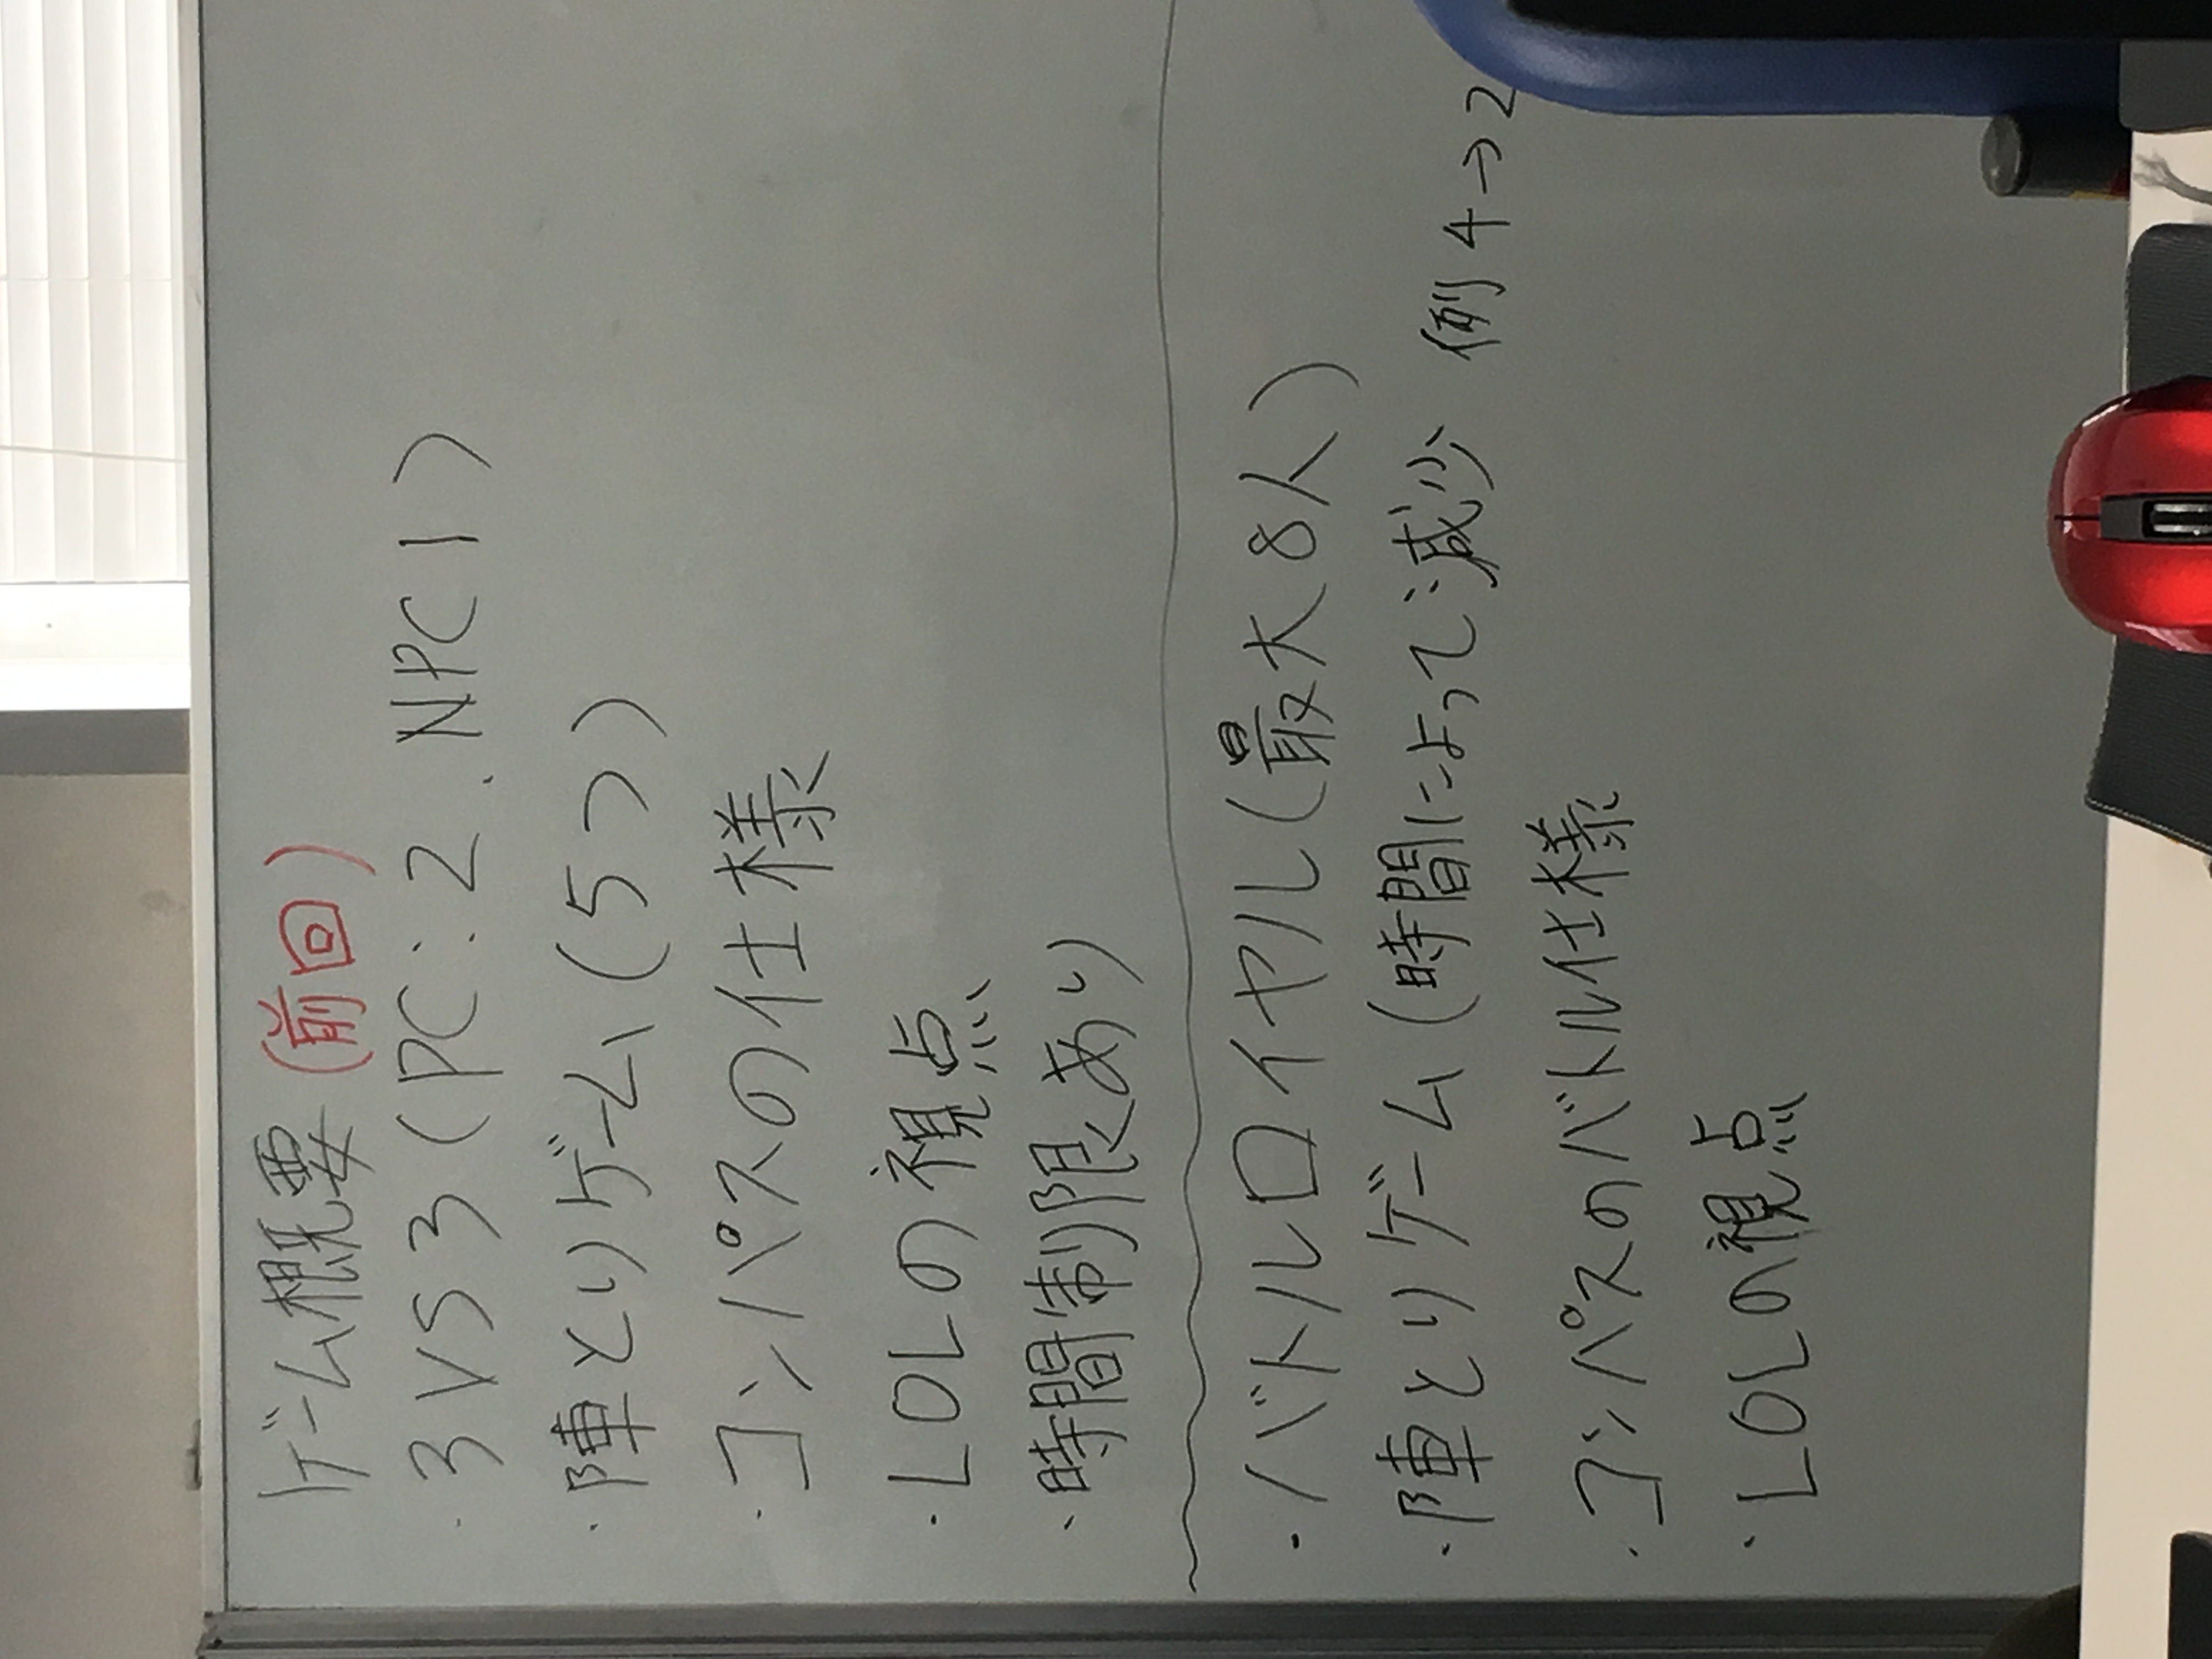 ゲーム概要(前回)
・3VS3(PC:2、NPC1)
・陣とりゲーム(5つ)
・コンパスの仕様
・LOLの視点
・時間制限あり
・バトルロイヤル(最大8人)
・陣とりゲーム(時間によって減少 例4→2
・コンパスのバトル仕様
・LOLの視点